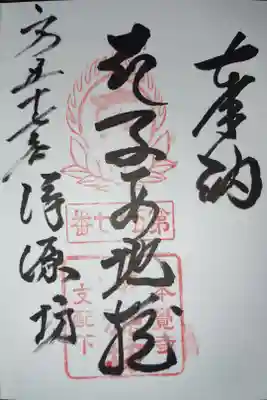 奉納
子安地蔵
第五十七番
本覺寺
支配下
第五十七番 浄源坊